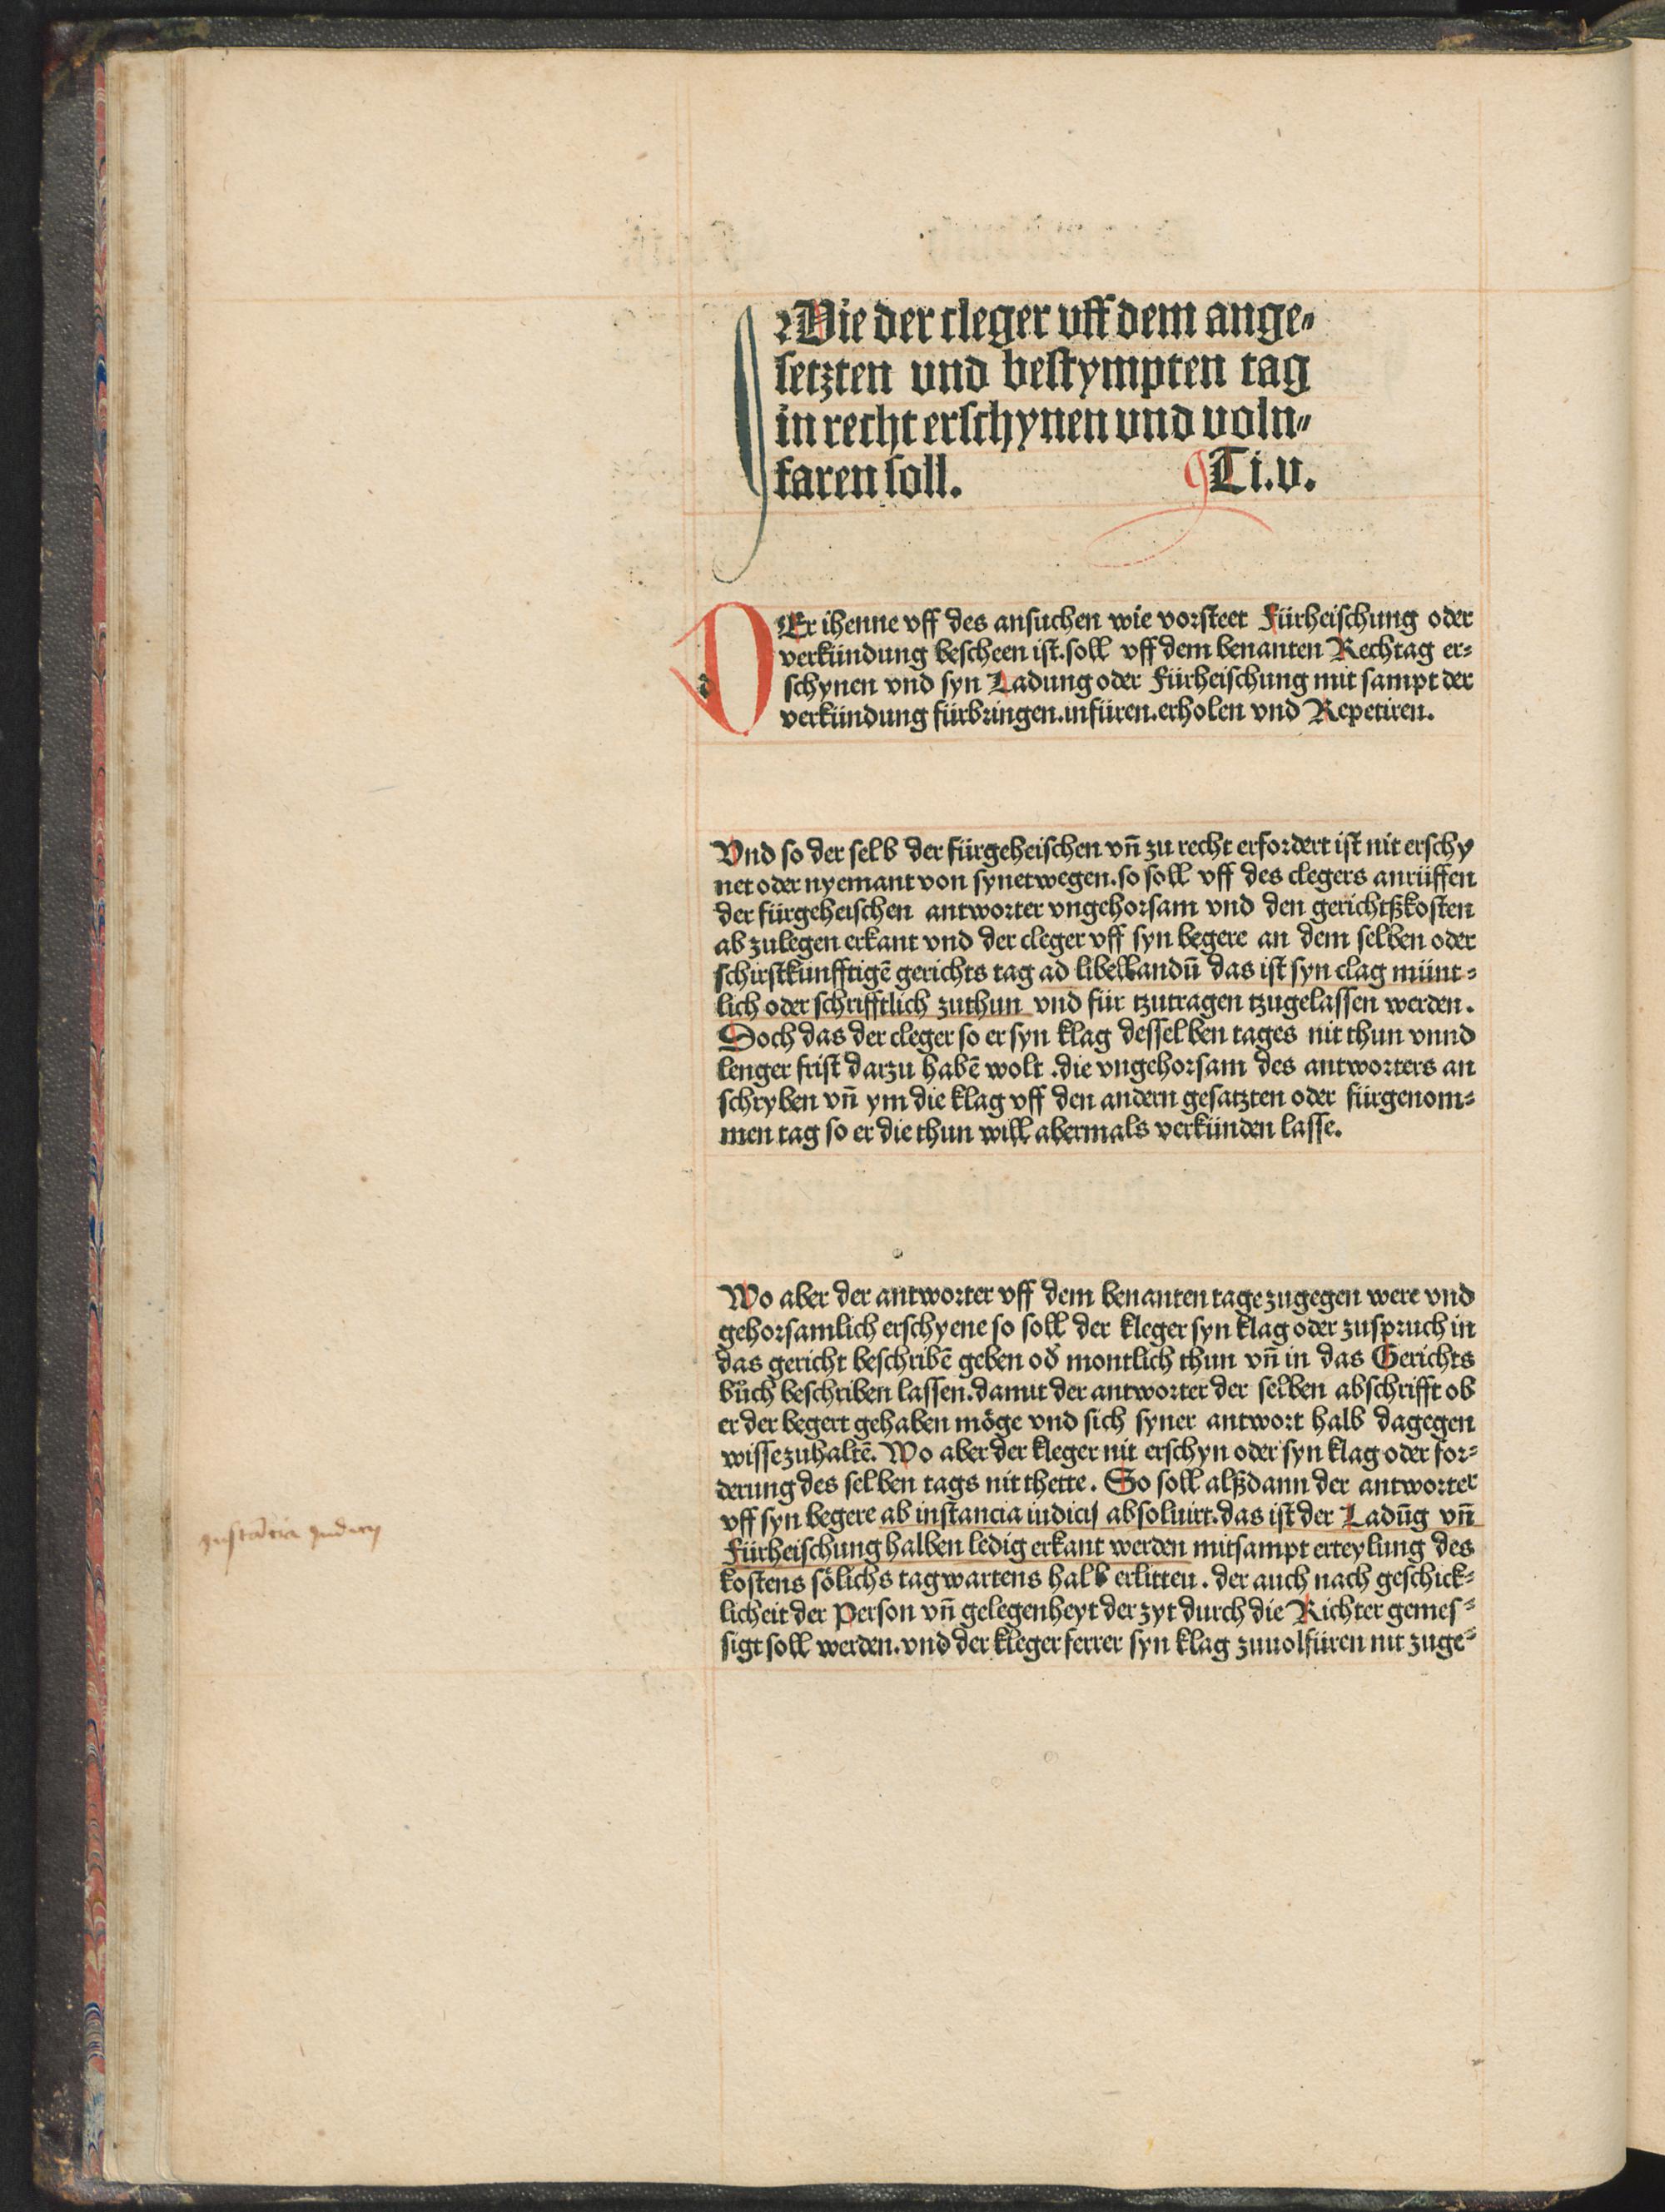 Wie der cleger vff dem ange⸗
setzten vnd bestympten tag
in recht erschynen vnd voln⸗
faren soll. Ti.v.
DEr ihenne vff des ansuchen wie vorsteet Fürheischung oder
verkündung bescheen ist. soll vff dem benanten Rechtag er⸗
schynen vnd syn Ladung oder Fürheischung mit sampt der
verkündung fürbringen. infüren. erholen vnd Repetiren.
Vnd so der selb der fürgeheischen vn̄ zu recht erfordert ist nit erschy
net oder nyemant von synetwegen. so soll vff des clegers anrüffen
der fürgeheischen antworter vngehorsam vnd den gerichtßkosten
ab zulegen erkant vnd der cleger vff syn begere an dem selben oder
schirstkünfftigē gerichts tag ad libellandū das ist syn clag münt⸗
lich oder schrifftlich zuthun vnd für tzutragen tzugelassen werden.
Doch das der cleger so er syn klag desselben tages nit thun vnnd
lenger frist darzu habē wolt. die vngehorsam des antworters an
schryben vn̄ ym die klag vff den andern gesatzten oder fürgenom⸗
men tag so er die thun will abermals verkünden lasse.
Wo aber der antworter vff dem benanten tage zugegen were vnd
gehorsamlich erschyene so soll der kleger syn klag oder zuspruch in
das gericht beschribē geben od̄ montlich thun vn̄ in das Gerichts
bůch beschriben lassen. damit der antworter der selben abschrifft ob
er der begert gehaben möge vnd sich syner antwort halb dagegen
wisse zuhaltē. Wo aber der kleger nit erschyn oder syn klag oder for⸗
derung des selben tags nit thette. So soll alßdann der antworter
vff syn begere ab instancia iudicij absoluirt. das ist der Ladūg vn̄
Fürheischung halben ledig erkant werden mitsampt erteylung des
kostens sölichs tagwartens halb erlitten. der auch nach geschick⸗
licheit der Person vn̄ gelegenheyt der zyt durch die Richter gemes⸗
sigt soll werden. vnd der kleger ferrer syn klag zuuolfüren nit zuge⸗
Instācia Judicij